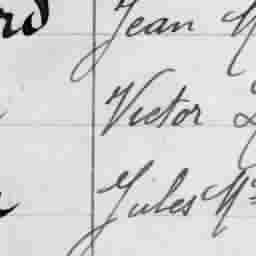 rd Jean
Victor
Jules